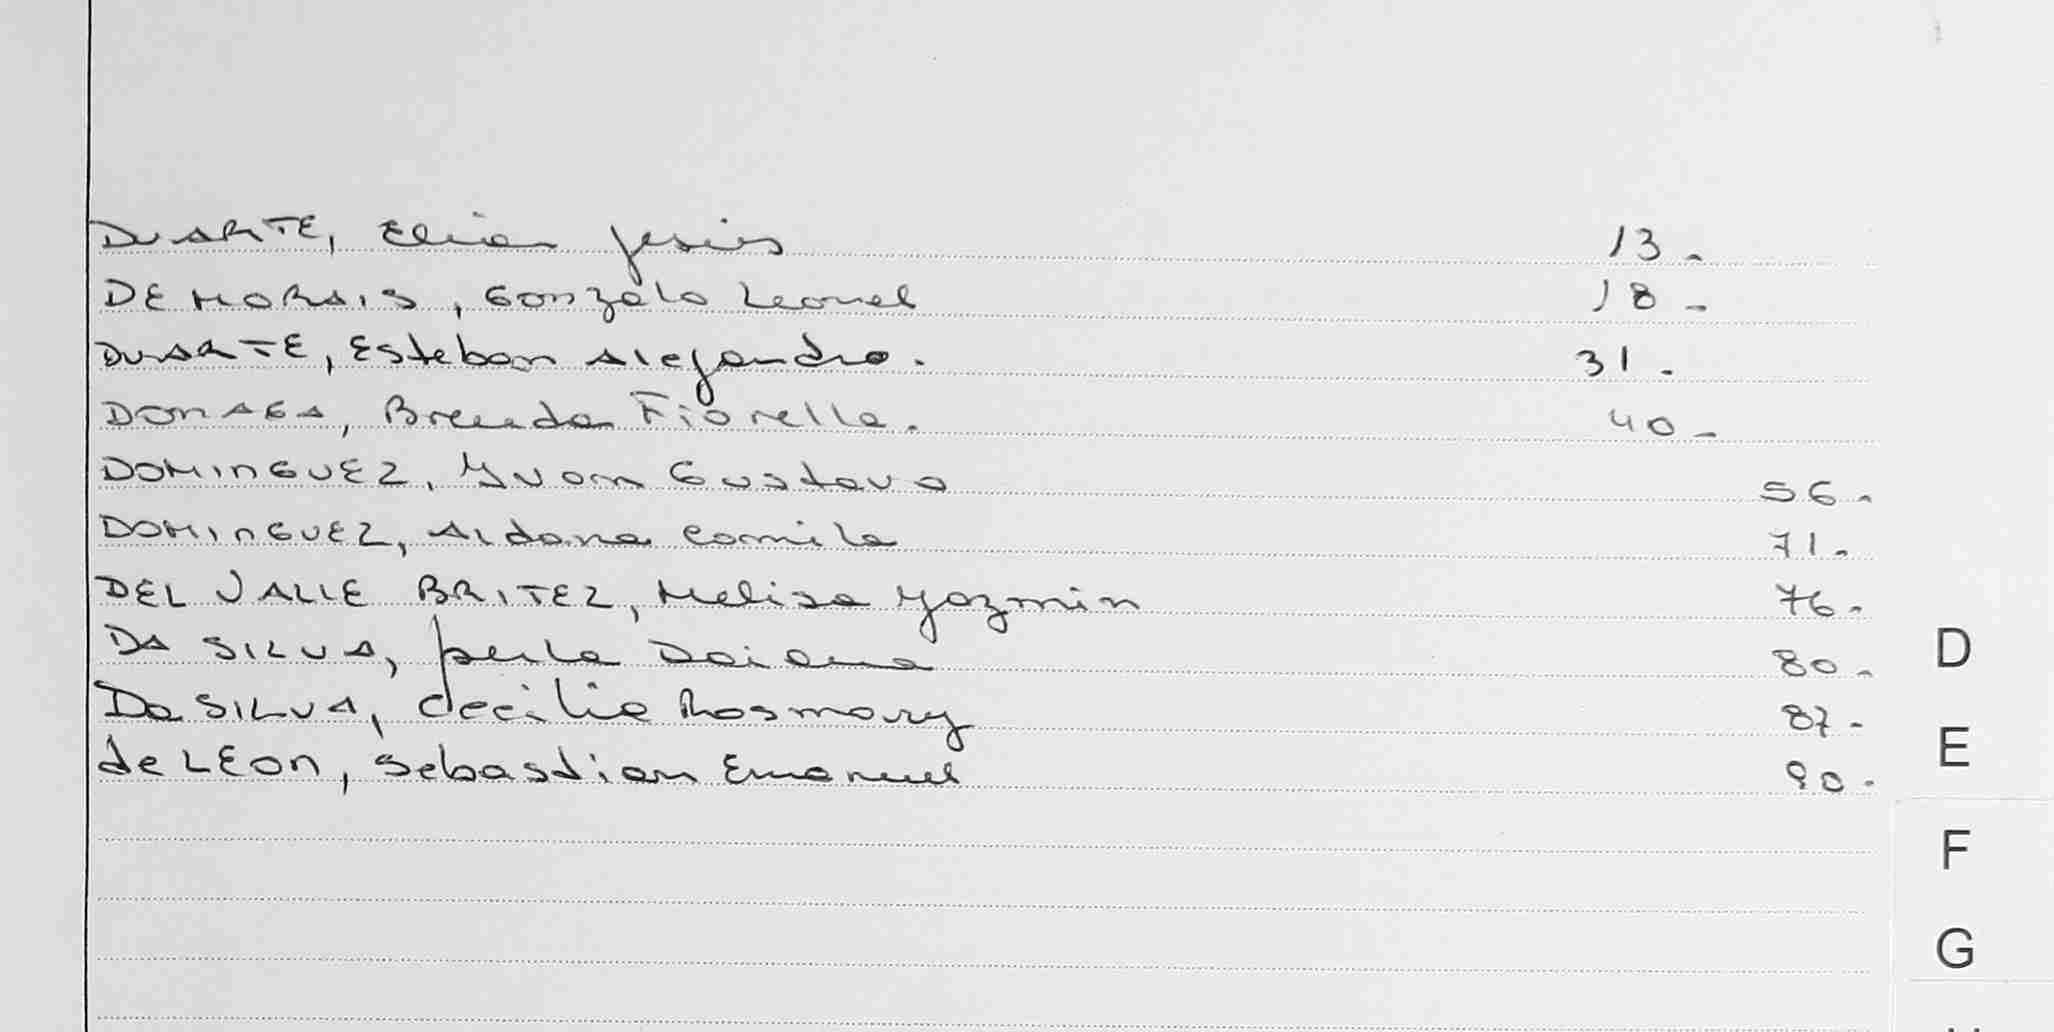 DUARTE, Elian Jesús 13.-
DE MORAIS, Gonzalo Leonel 18.-
DUARTE, Esteban Alejandro. 31.
DOMAGA, Brenda Fiorella. 40-
DOMINGUEZ, Yvan Gustavo 56.-
DOMINGUEZ, Aldana Camila 71.-
DEL VALLE BRITEZ, Melisa Yazmin 76.-
DA SILVA, perla Daiana 80.-
D
Da SILVA, Cecilia Rosmary 87-
E
de LEON, Sebastian Emanuel 90.-
F
G